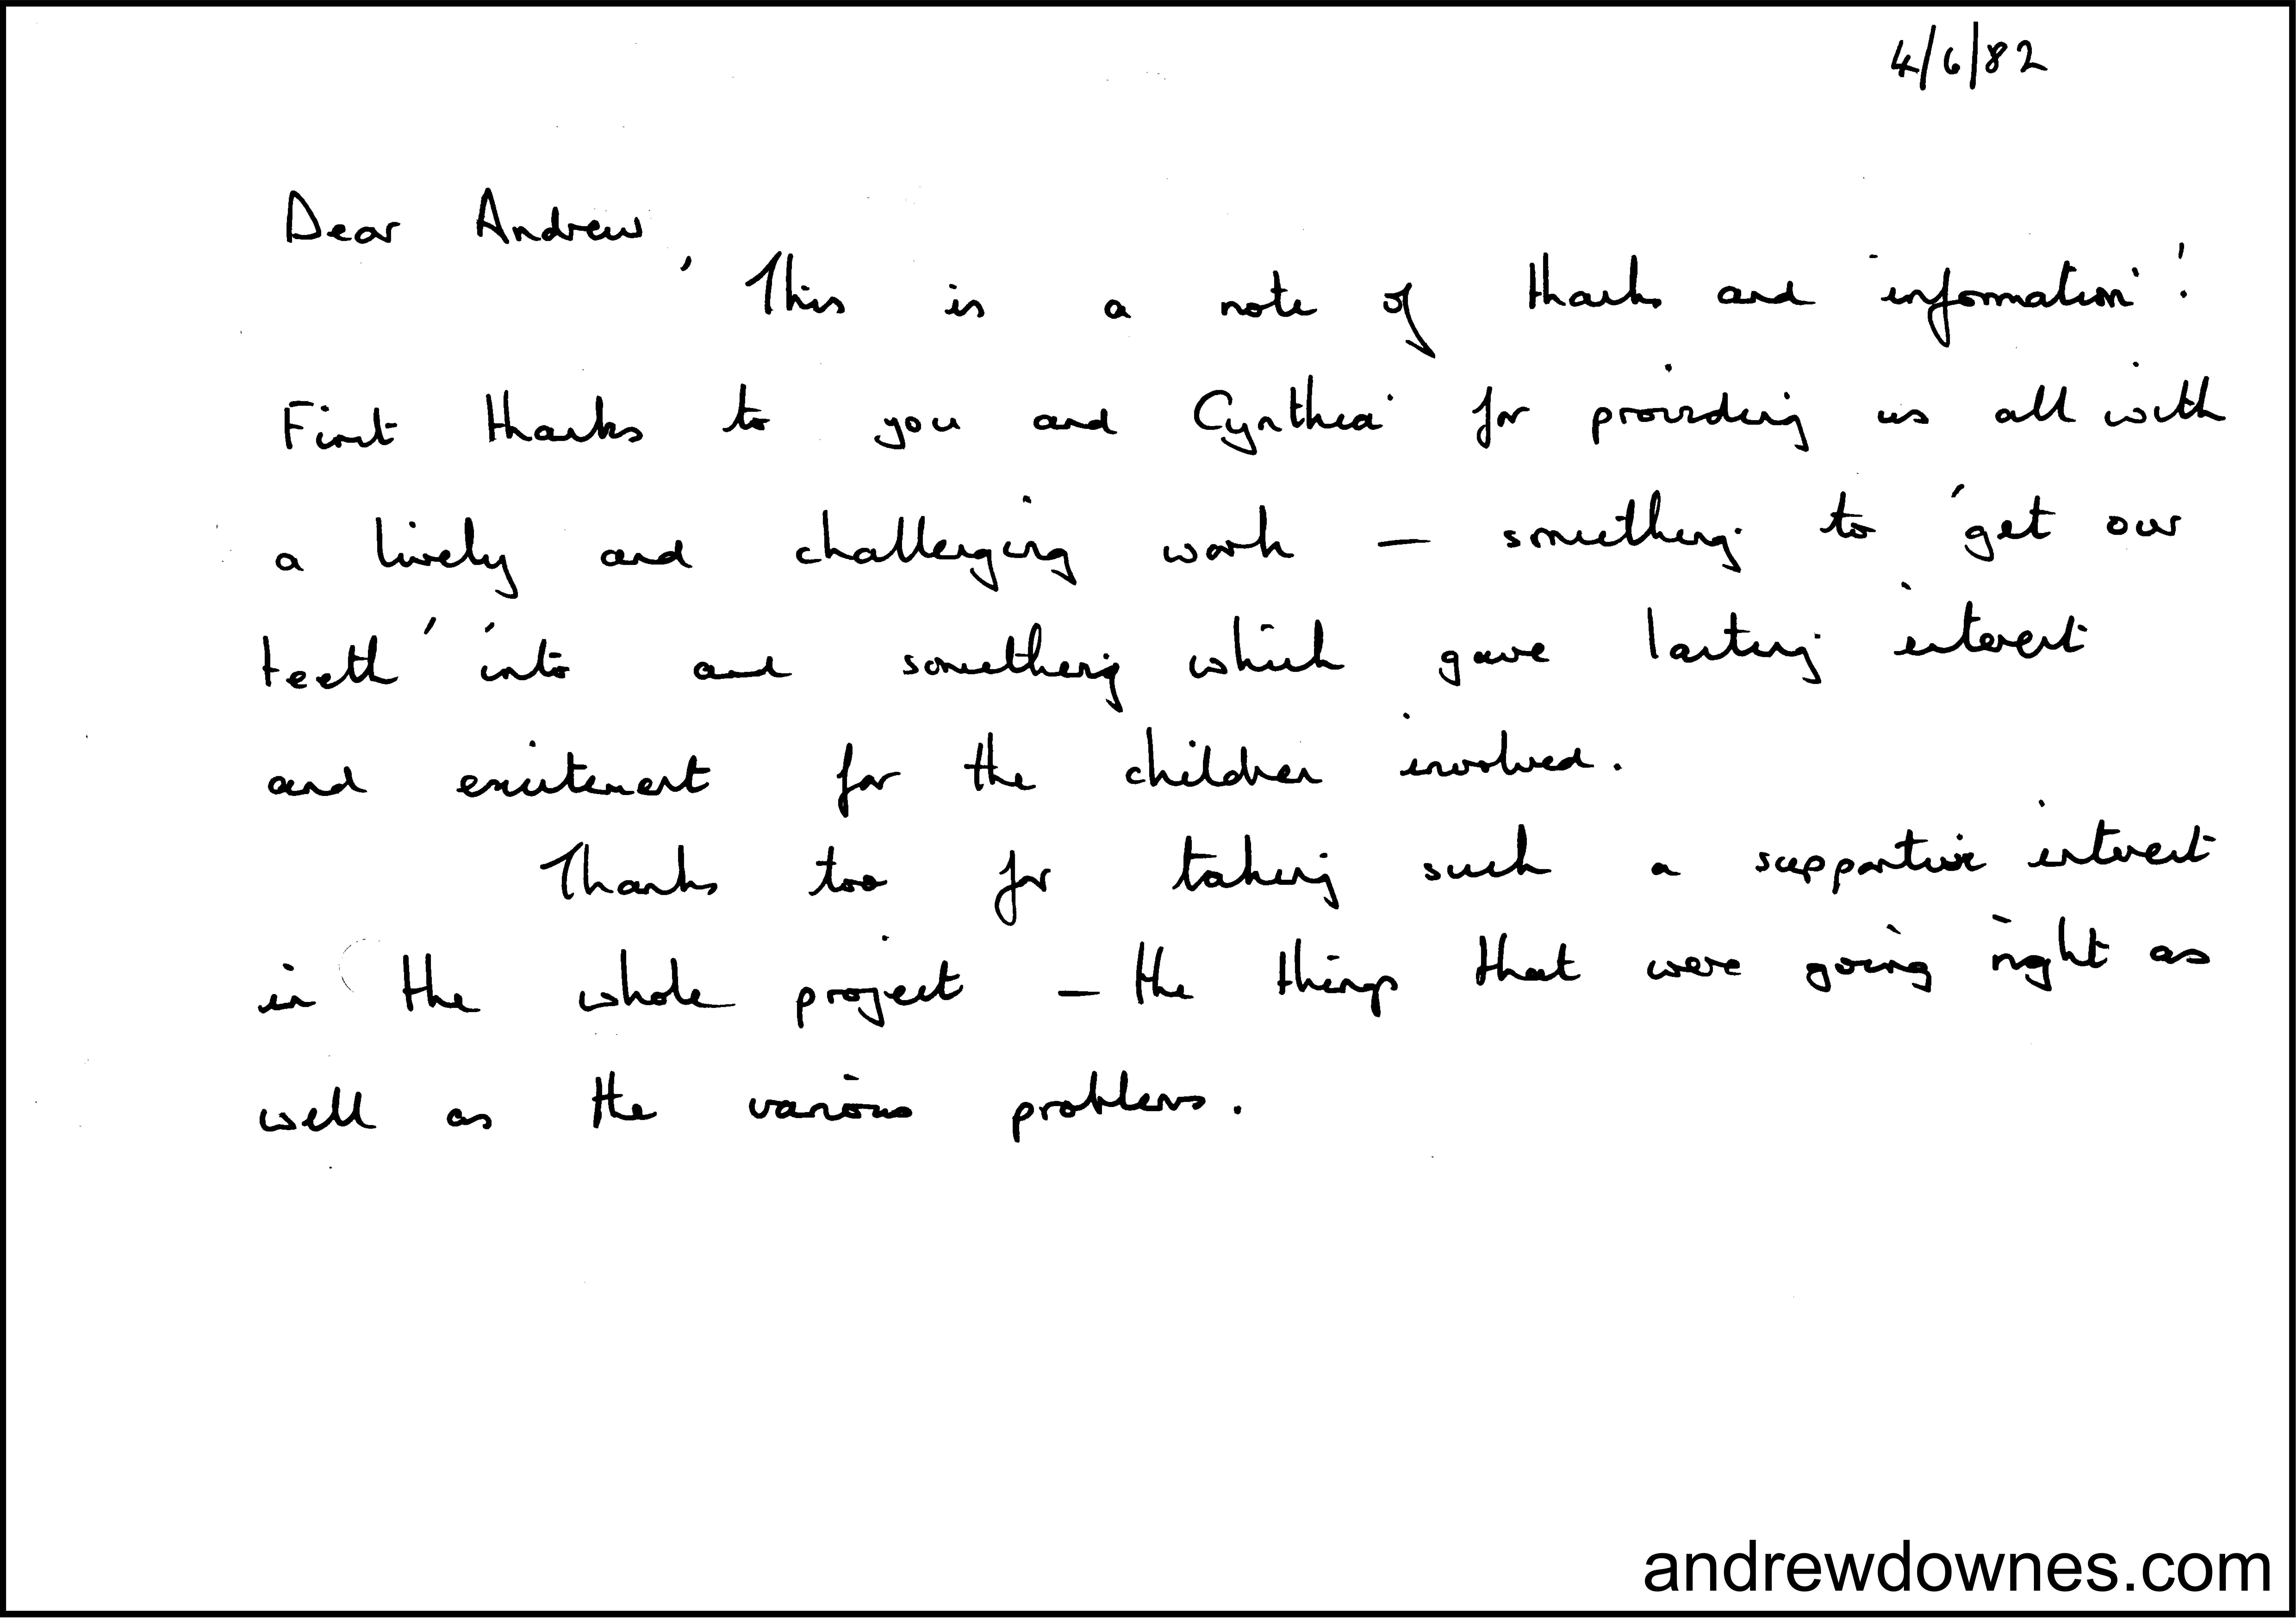 4/6/82
Dear Andrew,
'This is a note of thanks and information'!
First thanks to you and Cynthia for providing us all with
a lively and challenging work – something to 'get our
teeth' into and something which gave lasting interest
and excitement for the children involved.
Thanks too for taking such a supportive interest
in the whole project – the things that were going right as
well as the various problems.
andrewdownes.com